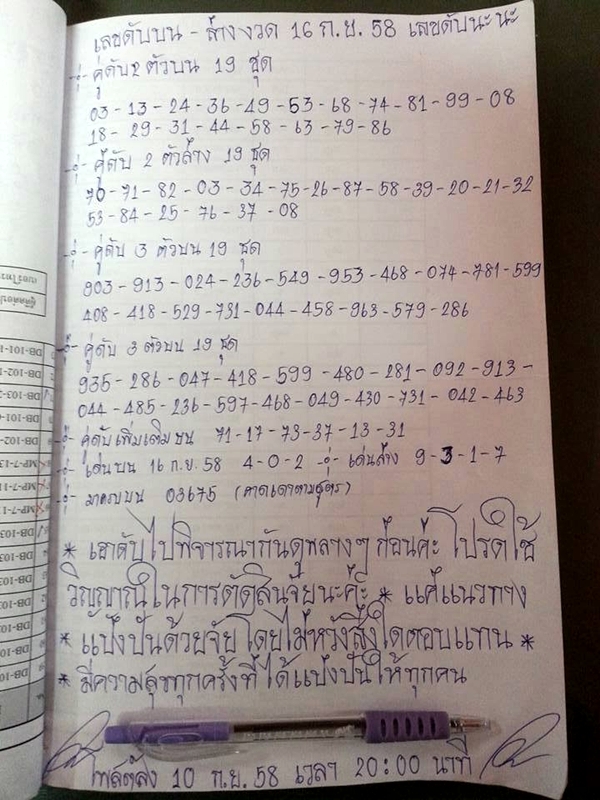 เลขดับบน - ล่างงวด 16 ก.ย. 58 เลขดับนะนะ
คู่ดับ 2 ตัวบน 19 ชุด
03-13-24-36-49-53-68-74-81-99-08
18-29-31-44-58-63-79-86
คู่ดับ 2 ตัวล่าง 19 ชุด
70-71-82-03-34-75-26-87-58-39-20-21-32
53-84-25-76-37-08
คู่ดับ 3 ตัวบน 19 ชุด
903-913-024-236-549-953-468-074-781-599
408-418-529-731-044-458-963-579-286
คู่ดับ 3 ตัวบน 19 ชุด
935-286-047-418-599-480-281-092-913-
044-485-236-597-468-049-430-731-042-463
คู่ดับเพิ่มเติมบน 71-17-73-37-13-31
เด่นบน 16 ก.ย. 58 4-0-2 เด่นล่าง 9-3-1-7
มาครบบน 03675 (คาดเดาตามสูตร)
* เอาดับไปพิจารณากันดูพลางๆ ก่อนค่ะ โปรดใช้
วิญญาณในการตัดสินจัยนะค่ะ * แค่แนวทาง
* แบ่งปันด้วยจัยโดยไม่หวังสิ่งใดตอบแทน *
* มีความสุขทุกครั้งที่ได้แบ่งปันให้ทุกคน
โพสต์ลง 10 ก.ย. 58 เวลา 20:00 นาที
DB-101-1
DB-102-1
DB-103-2
DB-101-0
DB-102-
MP-7-13
MP-7-1
DB-103
DB-103
DB-103
DB-10
DB-10
DB-10